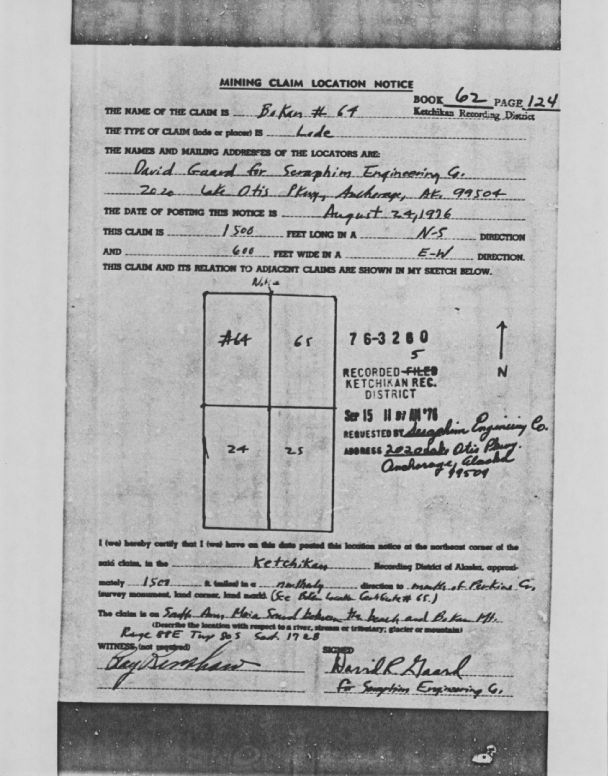 MINING CLAIM LOCATION NOTICE
BOOK 62 PAGE 124
Ketchikan Recording District
THE NAME OF THE CLAIM IS Bokan # 64
THE TYPE OF CLAIM (lode or placer) IS Lode
THE NAMES AND MAILING ADDRESSES OF THE LOCATORS ARE:
David Gaard for Seraphim Engineering Co.
2020 Lake Otis Pkwy, Anchorage, AK. 99504
THE DATE OF POSTING THIS NOTICE IS August 24, 1976
THIS CLAIM IS 1500 FEET LONG IN A N-S DIRECTION
AND 600 FEET WIDE IN A E-W DIRECTION.
THIS CLAIM AND ITS RELATION TO ADJACENT CLAIMS ARE SHOWN IN MY SKETCH BELOW.
Notice
#64 65
76-3280
5
N
RECORDED-FILED
KETCHIKAN REC.
DISTRICT
SEP 15 11 AM '76
REQUESTED BY Seraphim Engineering Co.
ADDRESS 2020 Lake Otis Pkwy.
Anchorage, Alaska
99504
24 25
I (we) hereby certify that I (we) have on this date posted this location notice at the northeast corner of the
said claim, in the Ketchikan Recording District of Alaska, approxi-
mately 1500 ft. (miles) in a northerly direction to mouth of Perkins Cr.
(survey monument, land corner, land mark) (See 65.)
The claim is on South Arm Moira Sound between the beach and Bokan Mt.
(Describe the location with respect to a river, stream or tributary; glacier or mountain)
Range 88E Twp 80S Sect. 17 28
WITNESS (not required) SIGNED
Ray David R Gaard
for Seraphim Engineering Co.